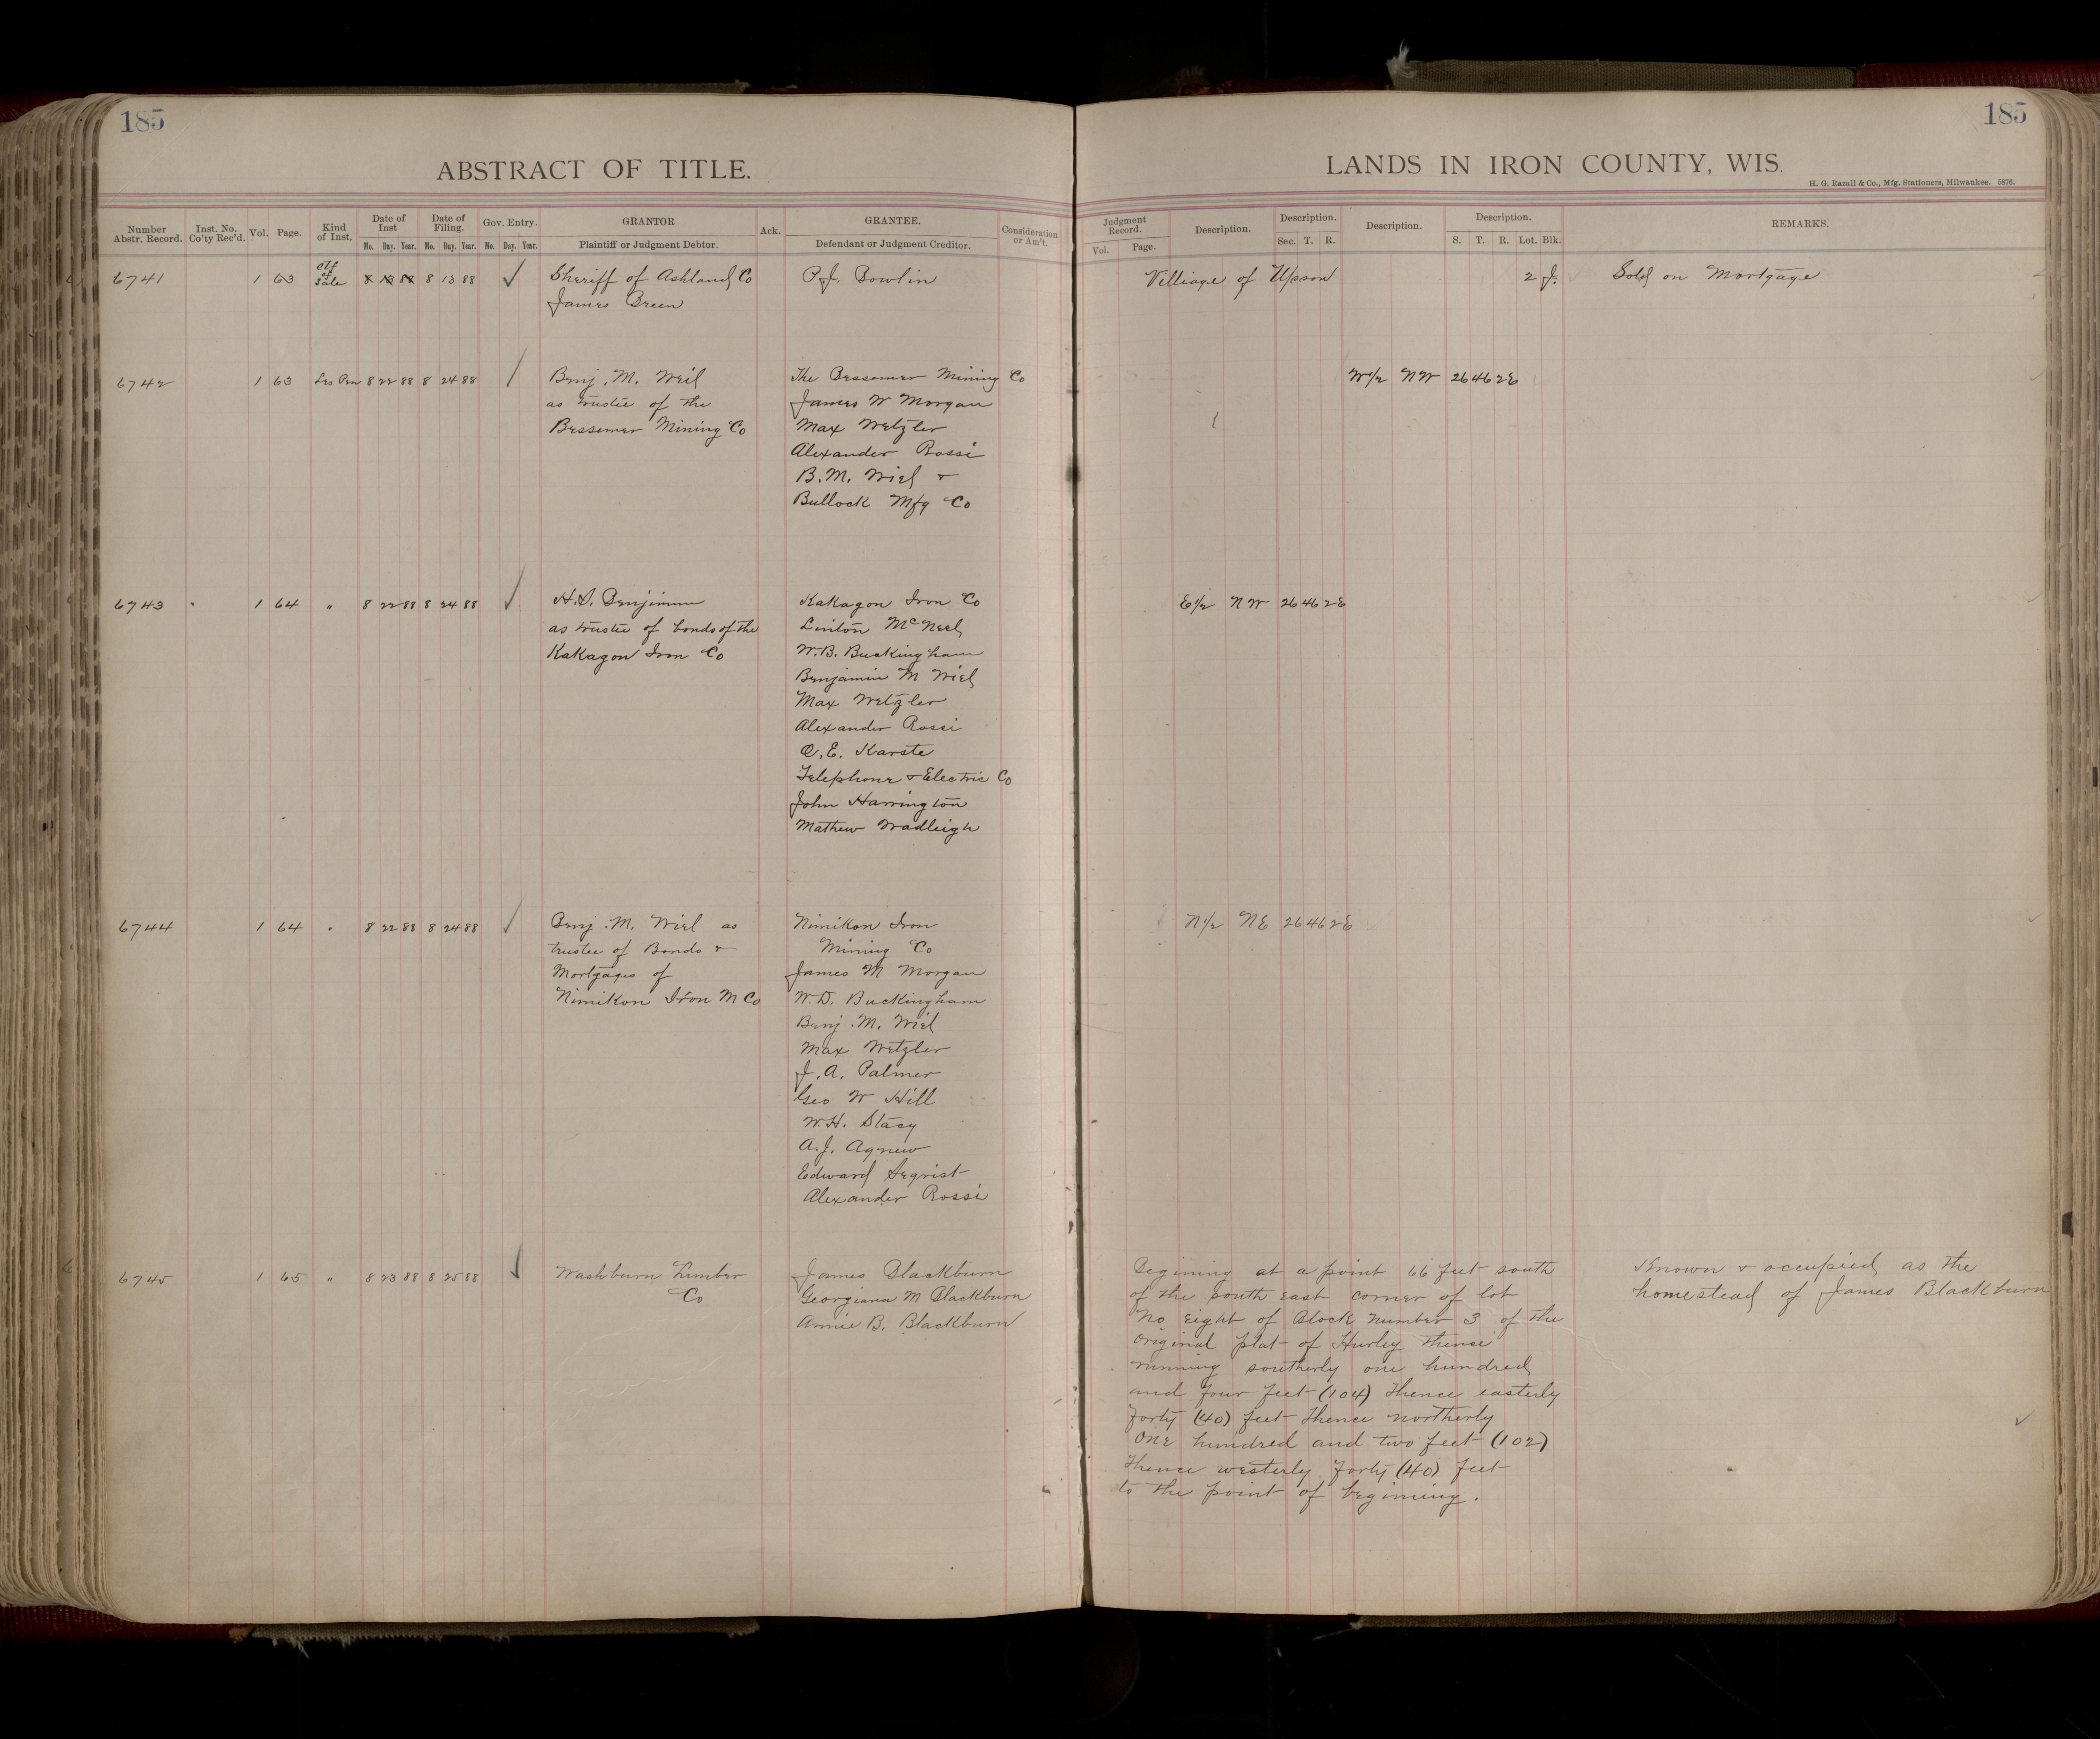 185
185
ABSTRACT OF TITLE.
LANDS IN IRON COUNTY, WIS.
H. G. Razall & Co., Mfg. Stationers, Milwaukee. 5876.
Number Abstr. Record. Inst. No. Co'ty Rec'd. Vol. Page. Kind of Inst. Date of Inst No. Day. Year. Date of Filing. No. Day. Year. Gov. Entry. No. Day. Year. GRANTOR Plaintiff or Judgment Debtor. Ack. GRANTEE. Defendant or Judgment Creditor. Consideration or Am't.
Judgment Record. Vol. Page. Description. Description. Sec. T. R. Description. Description. S. T. R. Lot. Blk. REMARKS.
6741 1 63 Ctf of Sale 8 13 88 8 13 88 ✓ Sheriff of Ashland Co P.J. Bowlin Villiage of Upson 2 J. Sold on Mortgage
James Breen
6742 1 63 Lis Pen 8 22 88 8 24 88 Benj. M. Weil The Bessemer Mining Co W1/2 NW 26 46 2E
as trustee of the James W Morgan
Bessemer Mining Co Max Wetzler
Alexander Rossi
B.M. Wiel &
Bullock Mfg Co
6743 1 64 " 8 22 88 8 24 88 ✓ H.S. Benjimin Kakagon Iron Co E1/2 NW 26 46 2E
as trustee of bonds of the Linton McNeel
Kakagon Iron Co W.B. Buckingham
Benjamin M Wiel
Max Wetzler
Alexander Rossi
O.E. Karste
Telephone & Electric Co
John Harrington
Mathew Wadleigh
6744 1 64 " 8 22 88 8 24 88 ✓ Benj. M. Wiel as Nimikon Iron N1/2 NE 26 46 2E
trustee of Bonds & Mining Co
Mortgages of James M Morgan
Nimikon Iron M Co W.D. Buckingham
Benj. M. Wiel
Max Wetzler
J.A. Palmer
Geo W Hill
W.H. Stacy
A.J. Agnew
Edward Seqrist
Alexander Rossi
6745 1 65 " 8 23 88 8 25 88 ✓ Washburn Lumber James Blackburn
Co Georgiana M Blackburn
Annie B. Blackburn
Begining at a point 66 feet south
of the south east corner of lot
No eight of Block number 3 of the
original plat of Hurley thence
running southerly one hundred
and four feet (104) thence easterly
forty (40) feet thence northerly
one hundred and two feet (102)
thence westerly forty (40) feet
to the point of begining.
Known & occupied as the
homestead of James Blackburn